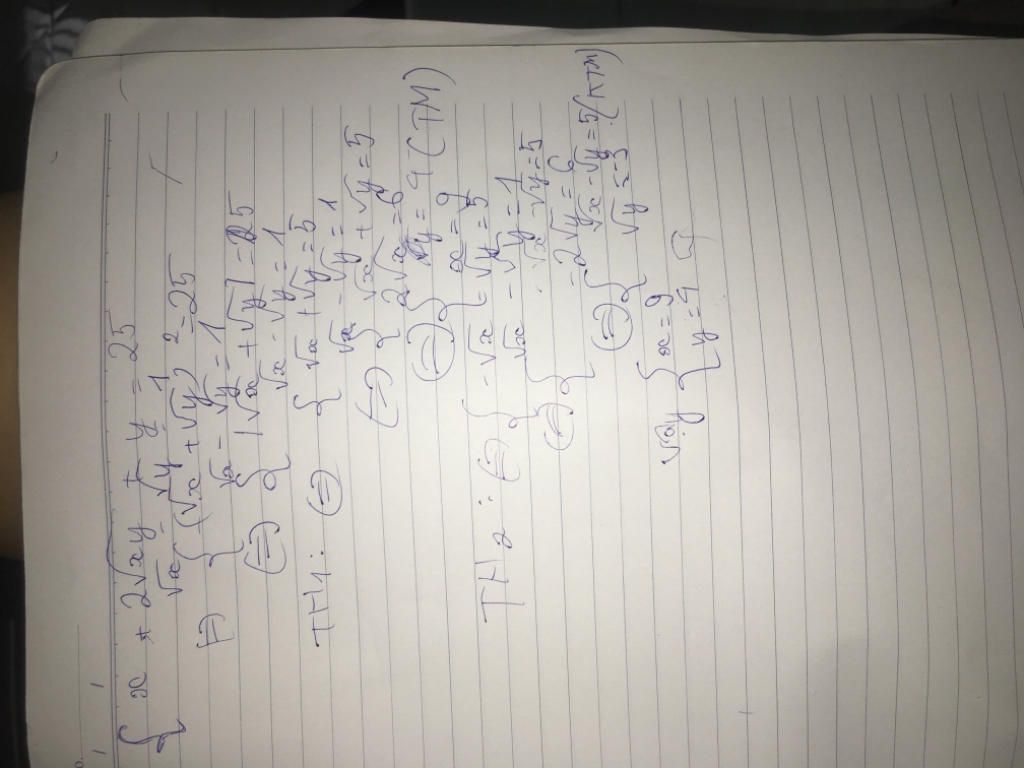 { x + 2√xy + y = 25
√x - √y = 1
⇔ { (√x + √y)² = 25
√x - √y = 1
⇔ { |√x + √y| = 25
√x - √y = 1
TH1: ⇔ { √x + √y = 5
√x - √y = 1
⇔ { √x + √y = 5
2√x = 6
⇔ { y = 4 (TM)
x = 9
TH2: ⇔ { -√x - √y = 5
√x - √y = 1
⇔ { -√x - √y = 5
-2√y = 6
⇔ { √x - √y = 5 (KTM)
√y = -3
Vậy { x = 9
y = 4